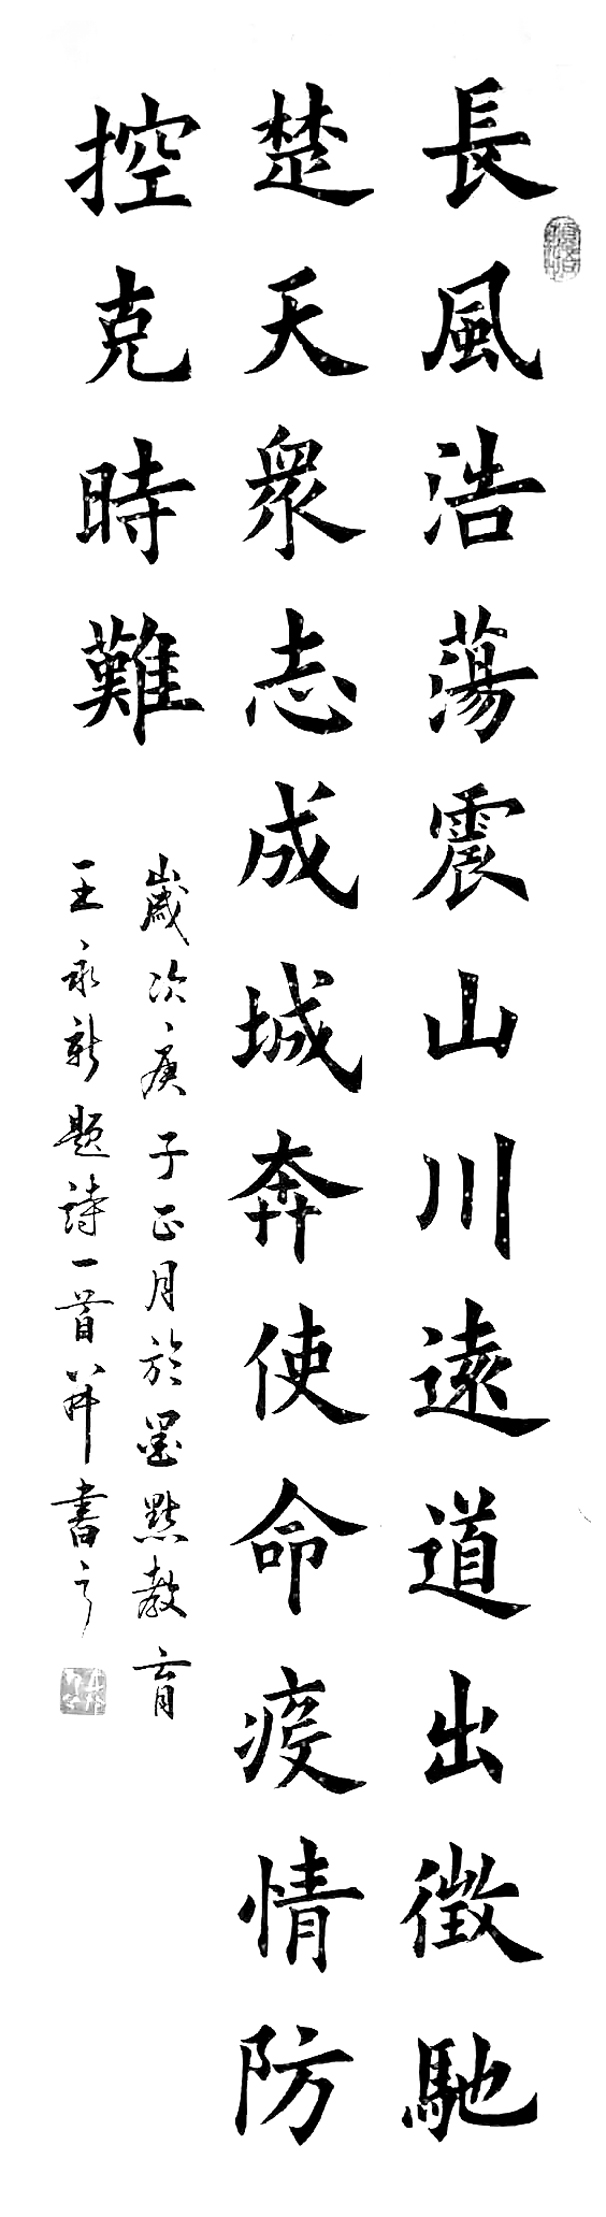 長風浩蕩震山川遠道出徵馳
楚天衆志成城奔使命疫情防
控克時難
歲次庚子正月於墨點教育
王永新題詩一首并書之